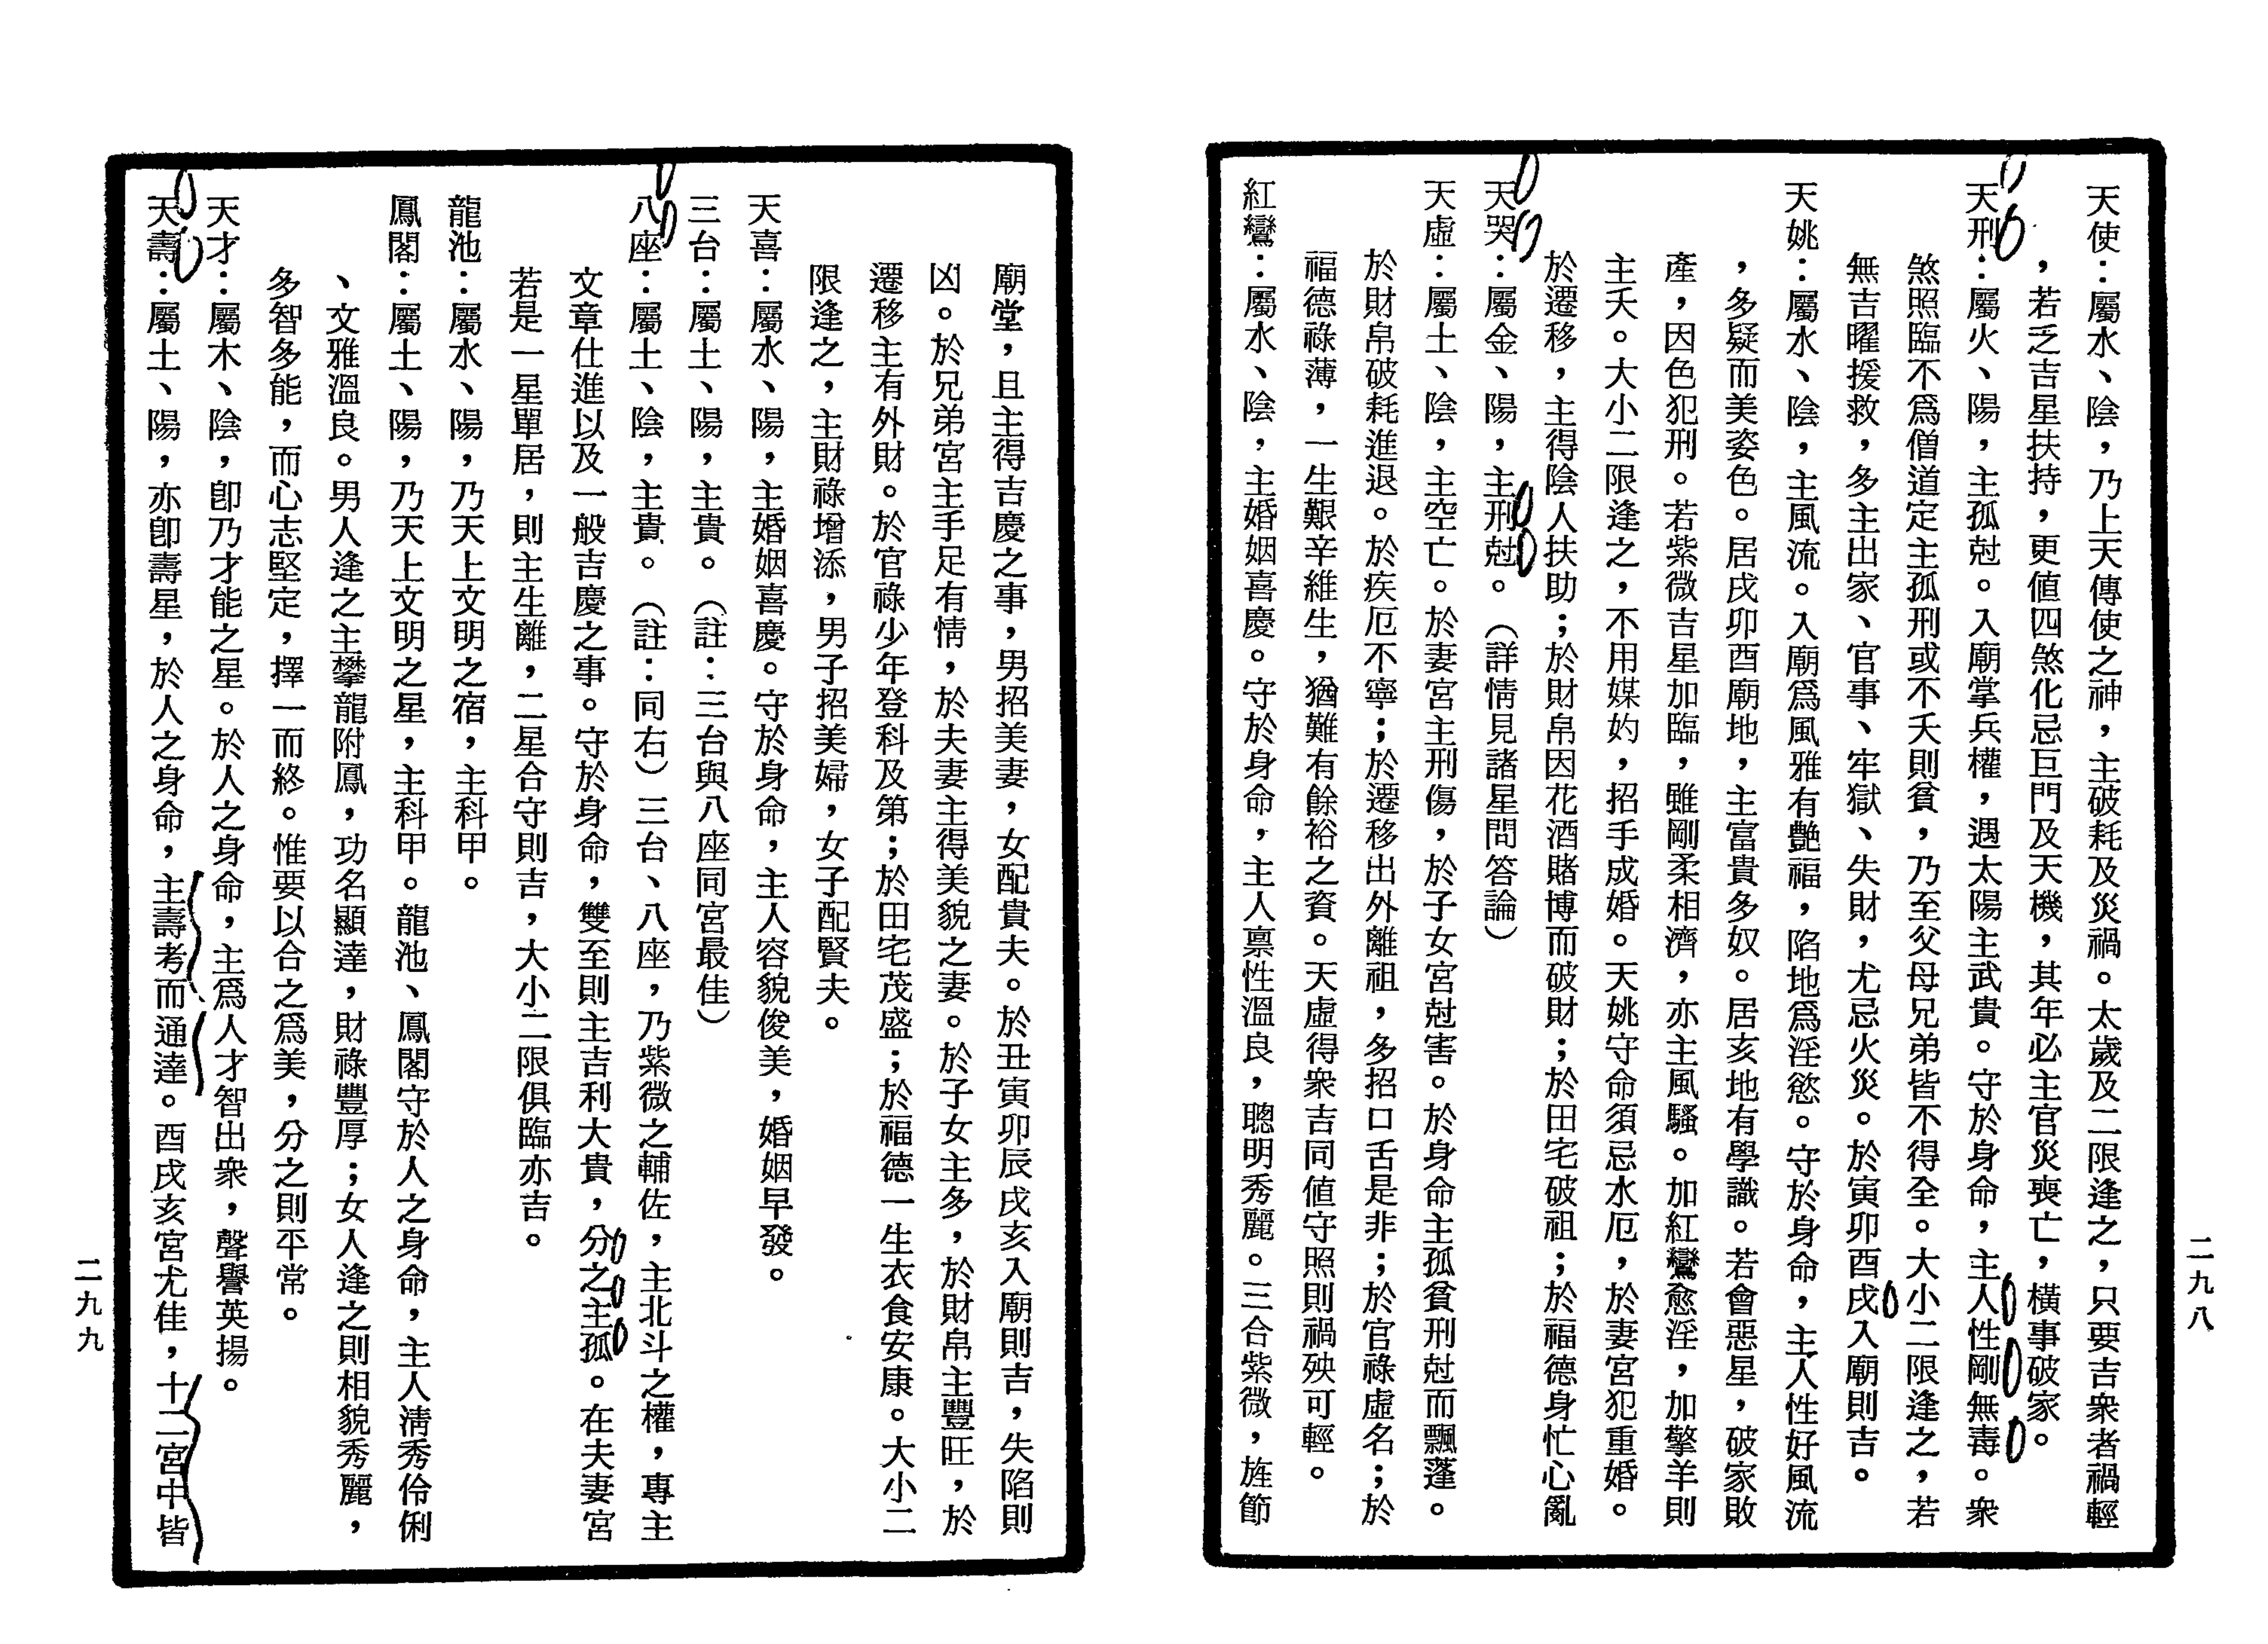 天使：屬水、陰，乃上天傳使之神，主破耗及災禍。太歲及二限逢之，只要吉衆者禍輕
，若乏吉星扶持，更値四煞化忌巨門及天機，其年必主官災喪亡，橫事破家。
天刑：屬火、陽，主孤尅。入廟掌兵權，遇太陽主武貴。守於身命，主人性剛無毒。衆
煞照臨不爲僧道定主孤刑或不夭則貧，乃至父母兄弟皆不得全。大小二限逢之，若
無吉曜援救，多主出家、官事、牢獄、失財，尤忌火災。於寅卯酉戌入廟則吉。
天姚：屬水、陰，主風流。入廟爲風雅有艷福，陷地爲淫慾。守於身命，主人性好風流
，多疑而美姿色。居戌卯酉廟地，主富貴多奴。居亥地有學識。若會惡星，破家敗
產，因色犯刑。若紫微吉星加臨，雖剛柔相濟，亦主風騷。加紅鸞愈淫，加擎羊則
主夭。大小二限逢之，不用媒妁，招手成婚。天姚守命須忌水厄，於妻宮犯重婚。
於遷移，主得陰人扶助；於財帛因花酒賭博而破財；於田宅破祖；於福德身忙心亂
天哭：屬金、陽，主刑尅。（詳情見諸星問答論）
天虛：屬土、陰，主空亡。於妻宮主刑傷，於子女宮尅害。於身命主孤貧刑尅而飄蓬。
於財帛破耗進退。於疾厄不寧；於遷移出外離祖，多招口舌是非；於官祿虛名；於
福德祿薄，一生艱辛維生，猶難有餘裕之資。天虛得衆吉同値守照則禍殃可輕。
紅鸞：屬水、陰，主婚姻喜慶。守於身命，主人禀性溫良，聰明秀麗。三合紫微，旌節
二九八
廟堂，且主得吉慶之事，男招美妻，女配貴夫。於丑寅卯辰戌亥入廟則吉，失陷則
凶。於兄弟宮主手足有情，於夫妻主得美貌之妻。於子女主多，於財帛主豐旺，於
遷移主有外財。於官祿少年登科及第；於田宅茂盛；於福德一生衣食安康。大小二
限逢之，主財祿增添，男子招美婦，女子配賢夫。
天喜：屬水、陽，主婚姻喜慶。守於身命，主人容貌俊美，婚姻早發。
三台：屬土、陽，主貴。（註：三台與八座同宮最佳）
八座：屬土、陰，主貴。（註：同右）三台、八座，乃紫微之輔佐，主北斗之權，專主
文章仕進以及一般吉慶之事。守於身命，雙至則主吉利大貴，分之主孤。在夫妻宮
若是一星單居，則主生離，二星合守則吉，大小二限俱臨亦吉。
龍池：屬水、陽，乃天上文明之宿，主科甲。
鳳閣：屬土、陽，乃天上文明之星，主科甲。龍池、鳳閣守於人之身命，主人淸秀伶俐
、文雅溫良。男人逢之主攀龍附鳳，功名顯達，財祿豐厚；女人逢之則相貌秀麗，
多智多能，而心志堅定，擇一而終。惟要以合之爲美，分之則平常。
天才：屬木、陰，卽乃才能之星。於人之身命，主爲人才智出衆，聲譽英揚。
天壽：屬土、陽，亦卽壽星，於人之身命，主壽考而通達。酉戌亥宮尤佳，十二宮中皆
二九九